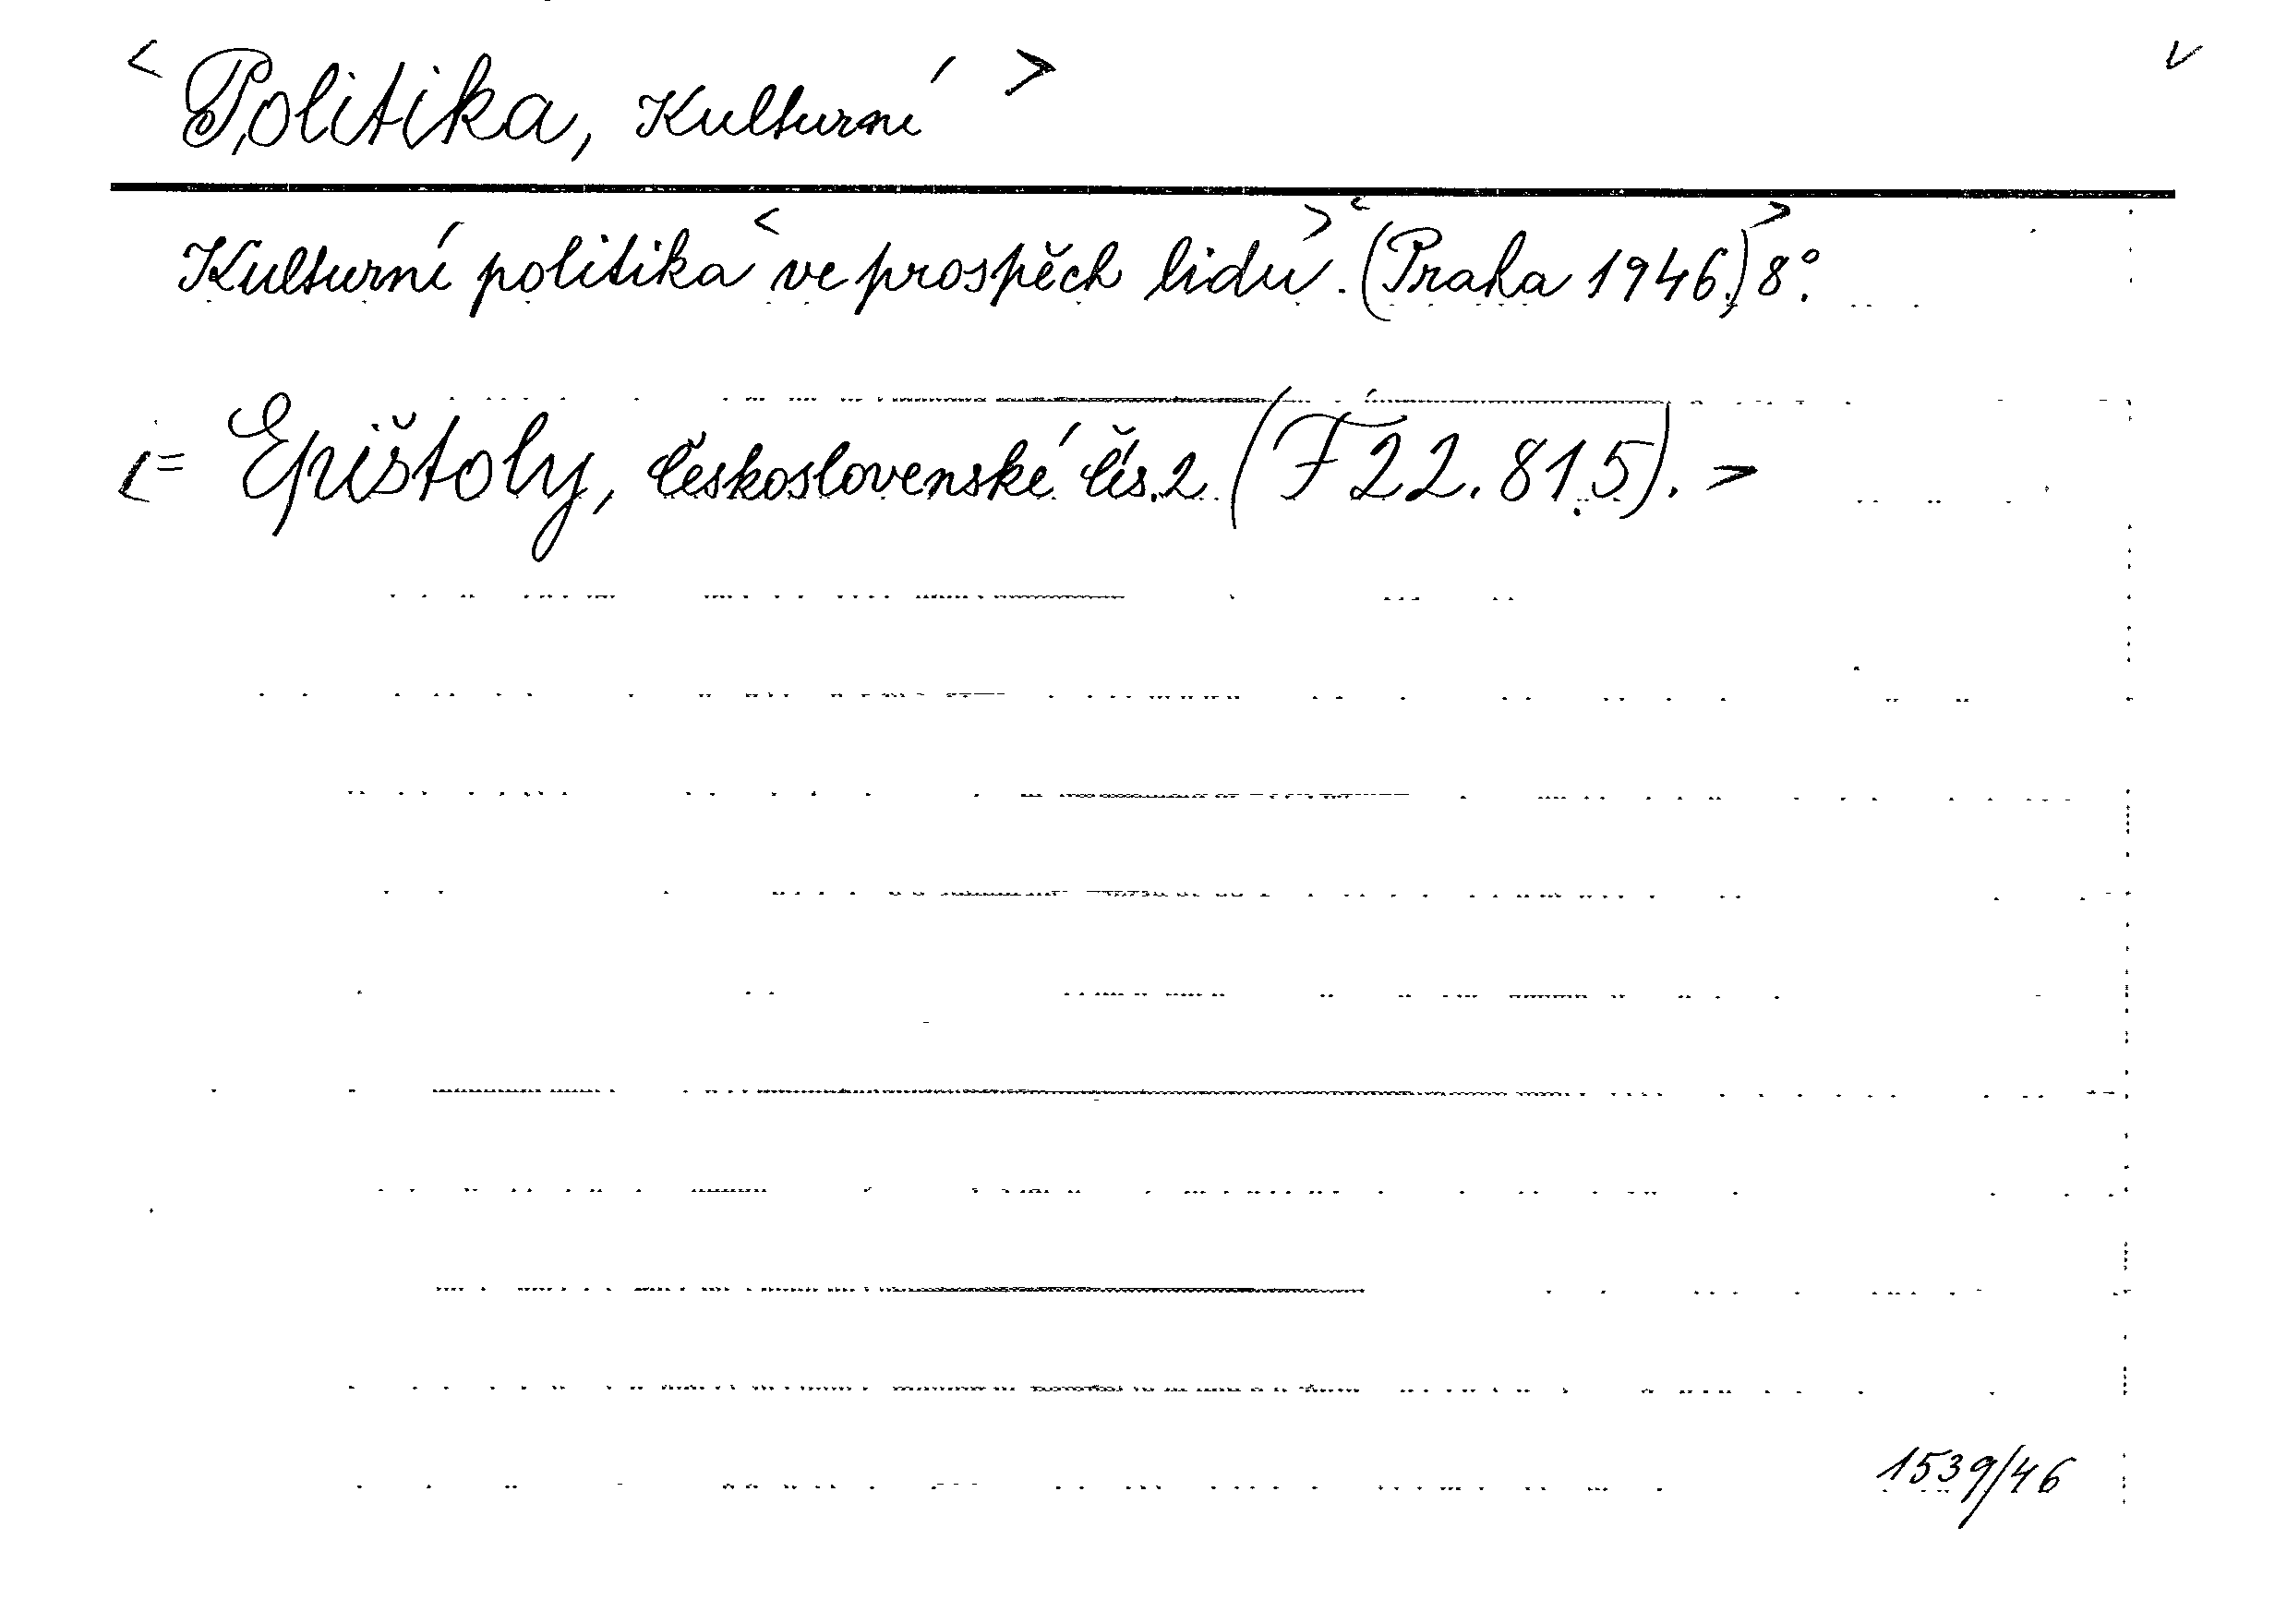 < Politika, Kulturní > v
Kulturní politika < ve prospěch lidu >. < (Praha 1946.) > 8°.
< = Epištoly, československé čís. 2 (F 22.815). >
1539/46